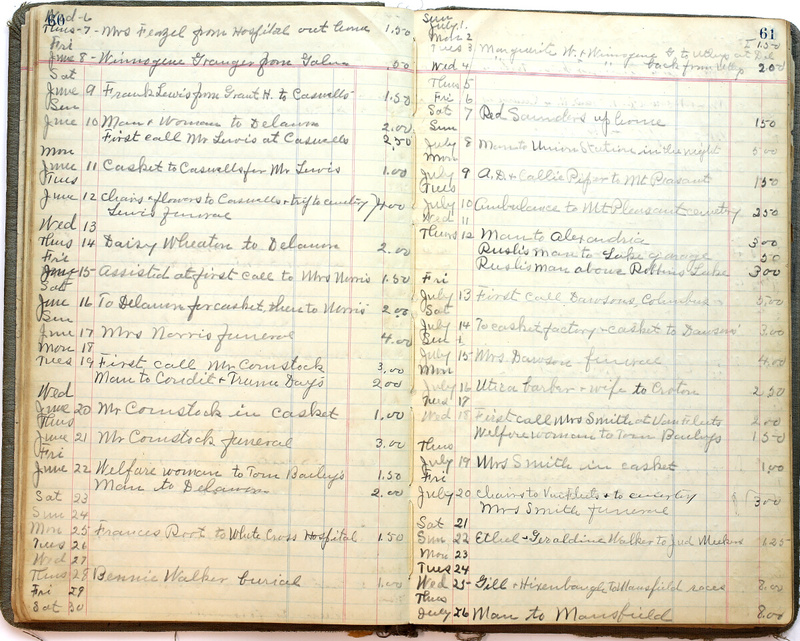 60
Wed-6
Thurs-7- Mrs Fenzel from Hospital out home 1.50
Fri
June 8- Winnogene Granger from Galena .50
Sat
June 9 Frank Lewis from Grant H. to Caswells 1.50
Sun
June 10 Man & Woman to Delawon 2.00
First call Mr Lewis at Caswells 2.50
Mon
June 11 Casket to Caswells for Mr Lewis 1.00
Tues
June 12 chairs & flowers to Caswells & trip to cemetry 4.00
Lewis funeral
Wed 13
Thurs 14 Daisy Wheaton to Delawon 2.00
Fri
June 15- Assisted at first call to Mrs Norris 1.50
Sat
June 16 To Delawon for casket, then to Norris 2.00
Sun
June 17 Mrs Norris funeral 4.00
Mon 18
Tues 19 First call Mr Comstock 3.00
Man to Condit & Trenn Days 2.00
Wed
June 20 Mr Comstock in casket 1.00
Thurs
June 21 Mr Comstock funeral 3.00
Fri
June 22 Welfare woman to Tom Bailey's 1.50
Man to Delawon 2.00
Sat 23
Sun 24
Mon 25 Frances Root to White Cross Hospital 1.50
Tues 26
Wed 27
Thurs 28 Bennie Walker burial 1.00
Fri 29
Sat 30
61
Sun
July 1.
Mon 2
Tues 3 Marguerite W. & Winnogene G. to 1.50
Wed 4 " " back from 2.00
Thurs 5
Fri 6
Sat 7 Red Saunders up home 1.50
Sun
July 8 Man to Union Station in the night 5.00
Mon
July 9 A.D. & Callie Piper to Mt Pleasant 1.50
Tues
July 10 Ambulance to Mt Pleasant cemetry 2.50
Wed 11
Thurs 12 Man to Alexandria 3.00
Rusli's man to Lake garage .50
Rusli's man above Robbins Lake 3.00
Fri
July 13 First call Dawsons, Columbus 5.00
Sat
July 14 To casket factory & casket to Dawsons' 3.00
Sun
July 15 Mrs. Dawson funeral 4.00
Mon
July 16 Utica barber & wife to Croton 2.50
Tues 17
Wed 18 First call Mrs Smith at Van Fleets 2.00
Welfare woman to Tom Bailey's 1.50
Thurs
July 19 Mrs Smith in casket 1.00
Fri
July 20 Chairs to & to cemetry 3.00
Mrs Smith funeral
Sat 21
Sun 22 Ethel & Geraldine Walker to Jud Meekers 1.25
Mon 23
Tues 24
Wed 25- Gill & Hixenbaugh to Mansfield races 8.00
Thurs
July 26 Man to Mansfield 8.00